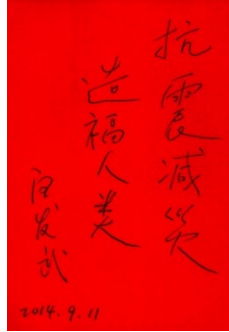 抗震减灾
造福人类
2014.9.11